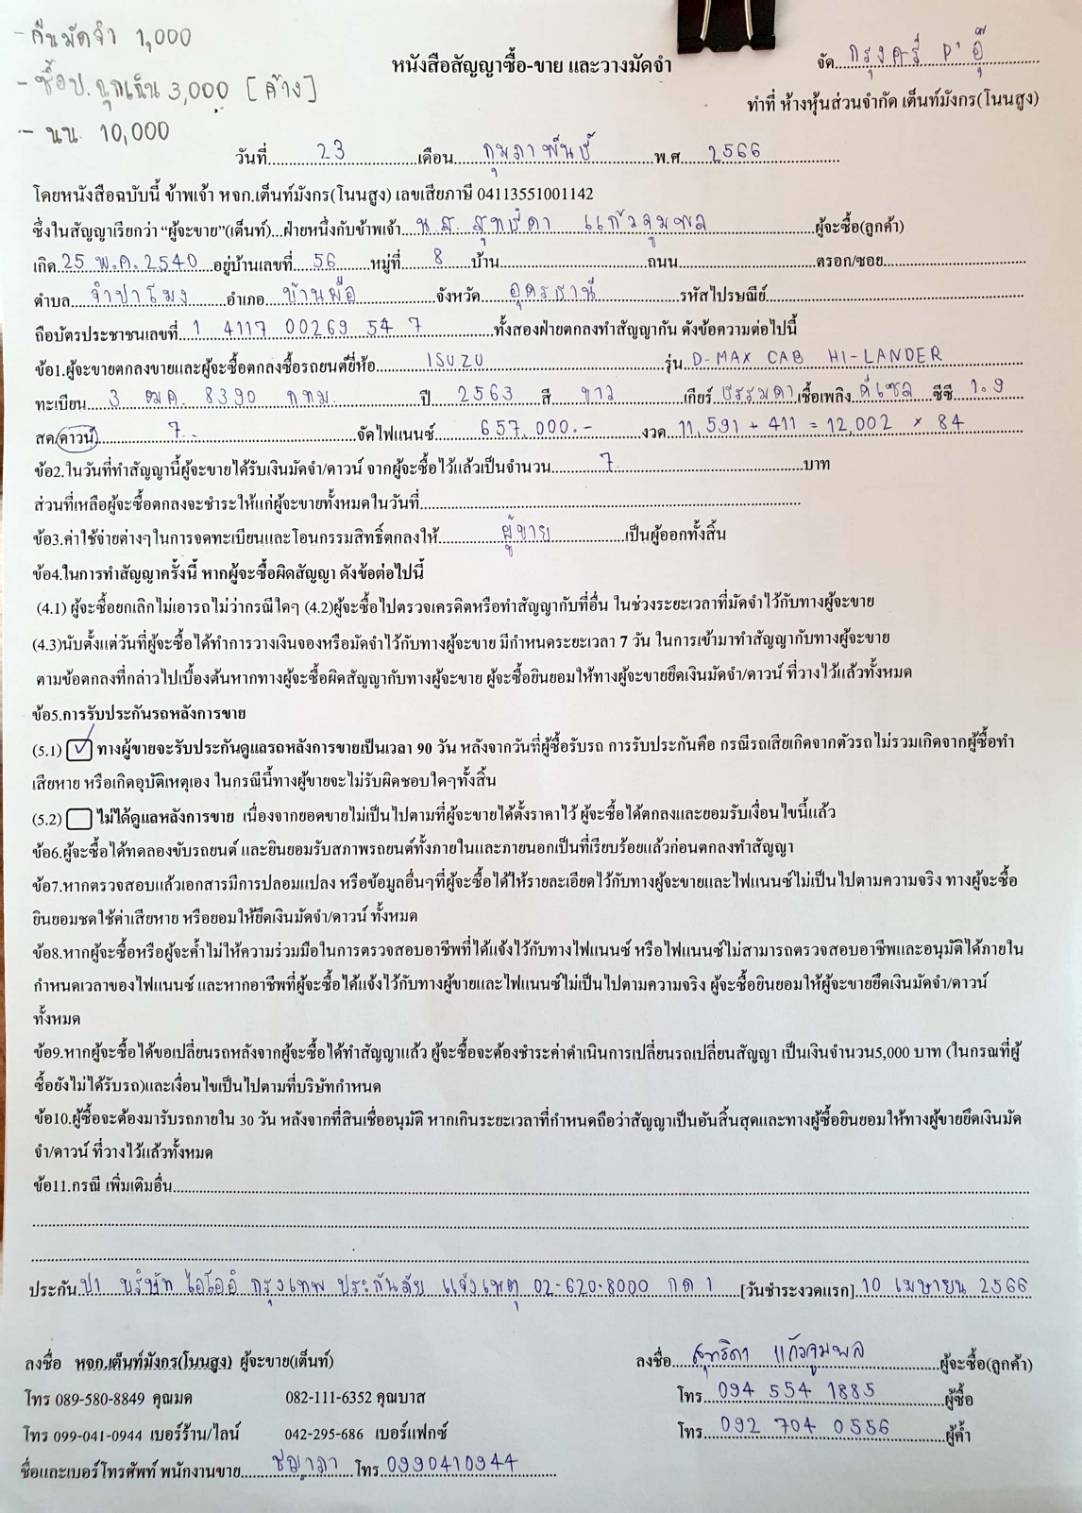 - คืนมัดจำ 1,000
- ซื้อป.ฉุกเฉิน 3,000 [ค้าง]
- นน. 10,000
หนังสือสัญญาซื้อ-ขาย และวางมัดจำ
จัด กรุงศรี P' อุ๊
ทำที่ ห้างหุ้นส่วนจำกัด เต็นท์มังกร(โนนสูง)
วันที่ 23 เดือน กุมภาพันธ์ พ.ศ 2566
โดยหนังสือฉบับนี้ ข้าพเจ้า หจก.เต็นท์มังกร(โนนสูง) เลขเสียภาษี 04113551001142
ซึ่งในสัญญาเรียกว่า “ผู้จะขาย”(เต็นท์)...ฝ่ายหนึ่งกับข้าพเจ้า น.ส. สุทธิดา แก้วจูมพล ผู้จะซื้อ(ลูกค้า)
เกิด 25 พ.ค. 2540 อยู่บ้านเลขที่ 56 หมู่ที่ 8 บ้าน ถนน ตรอก/ซอย
ตำบล จำปาโมง อำเภอ บ้านผือ จังหวัด อุดรธานี รหัสไปรษณีย์
ถือบัตรประชาชนเลขที่ 1 4117 00269 54 7 ทั้งสองฝ่ายตกลงทำสัญญากัน ดังข้อความต่อไปนี้
ข้อ1.ผู้จะขายตกลงขายและผู้จะซื้อตกลงซื้อรถยนต์ยี่ห้อ ISUZU รุ่น D-MAX CAB HI-LANDER
ทะเบียน 3 ฒค. 8390 กทม. ปี 2563 สี ขาว เกียร์ ธรรมดา เชื้อเพลิง ดีเซล ซีซี 1.9
สด/ดาวน์ 7.- จัดไฟแนนซ์ 657,000.- งวด 11,591 + 411 = 12,002 × 84
ข้อ2.ในวันที่ทำสัญญานี้ผู้จะขายได้รับเงินมัดจำ/ดาวน์ จากผู้จะซื้อไว้แล้วเป็นจำนวน 7 บาท
ส่วนที่เหลือผู้จะซื้อตกลงจะชำระให้แก่ผู้จะขายทั้งหมดในวันที่
ข้อ3.ค่าใช้จ่ายต่างๆในการจดทะเบียนและโอนกรรมสิทธิ์ตกลงให้ ผู้ขาย เป็นผู้ออกทั้งสิ้น
ข้อ4.ในการทำสัญญาครั้งนี้ หากผู้จะซื้อผิดสัญญา ดังข้อต่อไปนี้
(4.1) ผู้จะซื้อยกเลิกไม่เอารถไม่ว่ากรณีใดๆ (4.2)ผู้จะซื้อไปตรวจเครดิตหรือทำสัญญากับที่อื่น ในช่วงระยะเวลาที่มัดจำไว้กับทางผู้จะขาย
(4.3)นับตั้งแต่วันที่ผู้จะซื้อได้ทำการวางเงินจองหรือมัดจำไว้กับทางผู้จะขาย มีกำหนดระยะเวลา 7 วัน ในการเข้ามาทำสัญญากับทางผู้จะขาย
ตามข้อตกลงที่กล่าวไปเบื้องต้นหากทางผู้จะซื้อผิดสัญญากับทางผู้จะขาย ผู้จะซื้อยินยอมให้ทางผู้จะขายยึดเงินมัดจำ/ดาวน์ ที่วางไว้แล้วทั้งหมด
ข้อ5.การรับประกันรถหลังการขาย
(5.1) ✓ ทางผู้ขายจะรับประกันดูแลรถหลังการขายเป็นเวลา 90 วัน หลังจากวันที่ผู้ซื้อรับรถ การรับประกันคือ กรณีรถเสียเกิดจากตัวรถ ไม่รวมเกิดจากผู้ซื้อทำ
เสียหาย หรือเกิดอุบัติเหตุเอง ในกรณีนี้ทางผู้ขายจะไม่รับผิดชอบใดๆทั้งสิ้น
(5.2) ไม่ได้ดูแลหลังการขาย เนื่องจากยอดขายไม่เป็นไปตามที่ผู้จะขายได้ตั้งราคาไว้ ผู้จะซื้อได้ตกลงและยอมรับเงื่อนไขนี้แล้ว
ข้อ6.ผู้จะซื้อได้ทดลองขับรถยนต์ และยินยอมรับสภาพรถยนต์ทั้งภายในและภายนอกเป็นที่เรียบร้อยแล้วก่อนตกลงทำสัญญา
ข้อ7.หากตรวจสอบแล้วเอกสารมีการปลอมแปลง หรือข้อมูลอื่นๆที่ผู้จะซื้อได้ให้รายละเอียดไว้กับทางผู้จะขายและไฟแนนซ์ไม่เป็นไปตามความจริง ทางผู้จะซื้อ
ยินยอมชดใช้ค่าเสียหาย หรือยอมให้ยึดเงินมัดจำ/ดาวน์ ทั้งหมด
ข้อ8.หากผู้จะซื้อหรือผู้จะค้ำไม่ให้ความร่วมมือในการตรวจสอบอาชีพที่ได้แจ้งไว้กับทางไฟแนนซ์ หรือไฟแนนซ์ไม่สามารถตรวจสอบอาชีพและอนุมัติได้ภายใน
กำหนดเวลาของไฟแนนซ์ และหากอาชีพที่ผู้จะซื้อได้แจ้งไว้กับทางผู้ขายและไฟแนนซ์ไม่เป็นไปตามความจริง ผู้จะซื้อยินยอมให้ผู้จะขายยึดเงินมัดจำ/ดาวน์
ทั้งหมด
ข้อ9.หากผู้จะซื้อได้ขอเปลี่ยนรถหลังจากผู้จะซื้อได้ทำสัญญาแล้ว ผู้จะซื้อจะต้องชำระค่าดำเนินการเปลี่ยนรถเปลี่ยนสัญญา เป็นเงินจำนวน5,000 บาท (ในกรณที่ผู้
ซื้อยังไม่ได้รับรถ)และเงื่อนไขเป็นไปตามที่บริษัทกำหนด
ข้อ10.ผู้ซื้อจะต้องมารับรถภายใน 30 วัน หลังจากที่สินเชื่ออนุมัติ หากเกินระยะเวลาที่กำหนดถือว่าสัญญาเป็นอันสิ้นสุดและทางผู้ซื้อยินยอมให้ทางผู้ขายยึดเงินมัด
จำ/ดาวน์ ที่วางไว้แล้วทั้งหมด
ข้อ11.กรณี เพิ่มเติมอื่น
ประกัน ป1 บริษัท ไอโออิ กรุงเทพ ประกันภัย แจ้งเหตุ 02-620-8000 กด 1 [วันชำระงวดแรก] 10 เมษายน 2566
ลงชื่อ หจก.เต็นท์มังกร(โนนสูง) ผู้จะขาย(เต็นท์)
ลงชื่อ สุทธิดา แก้วจูมพล ผู้จะซื้อ(ลูกค้า)
โทร 089-580-8849 คุณมด 082-111-6352 คุณบาส
โทร 094 554 1885 ผู้ซื้อ
โทร 099-041-0944 เบอร์ร้าน/ไลน์ 042-295-686 เบอร์แฟกซ์
โทร 092 704 0556 ผู้ค้ำ
ชื่อและเบอร์โทรศัพท์ พนักงานขาย ชญาภา โทร 0990410944